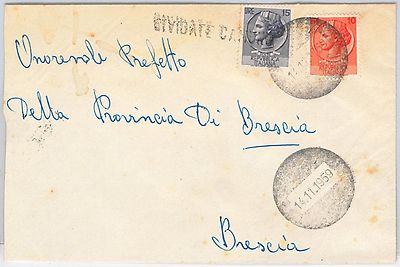 CIVIDATE CA
15
10
Onorevole Prefetto
Della Provincia Di Brescia
14.11.1959
Brescia